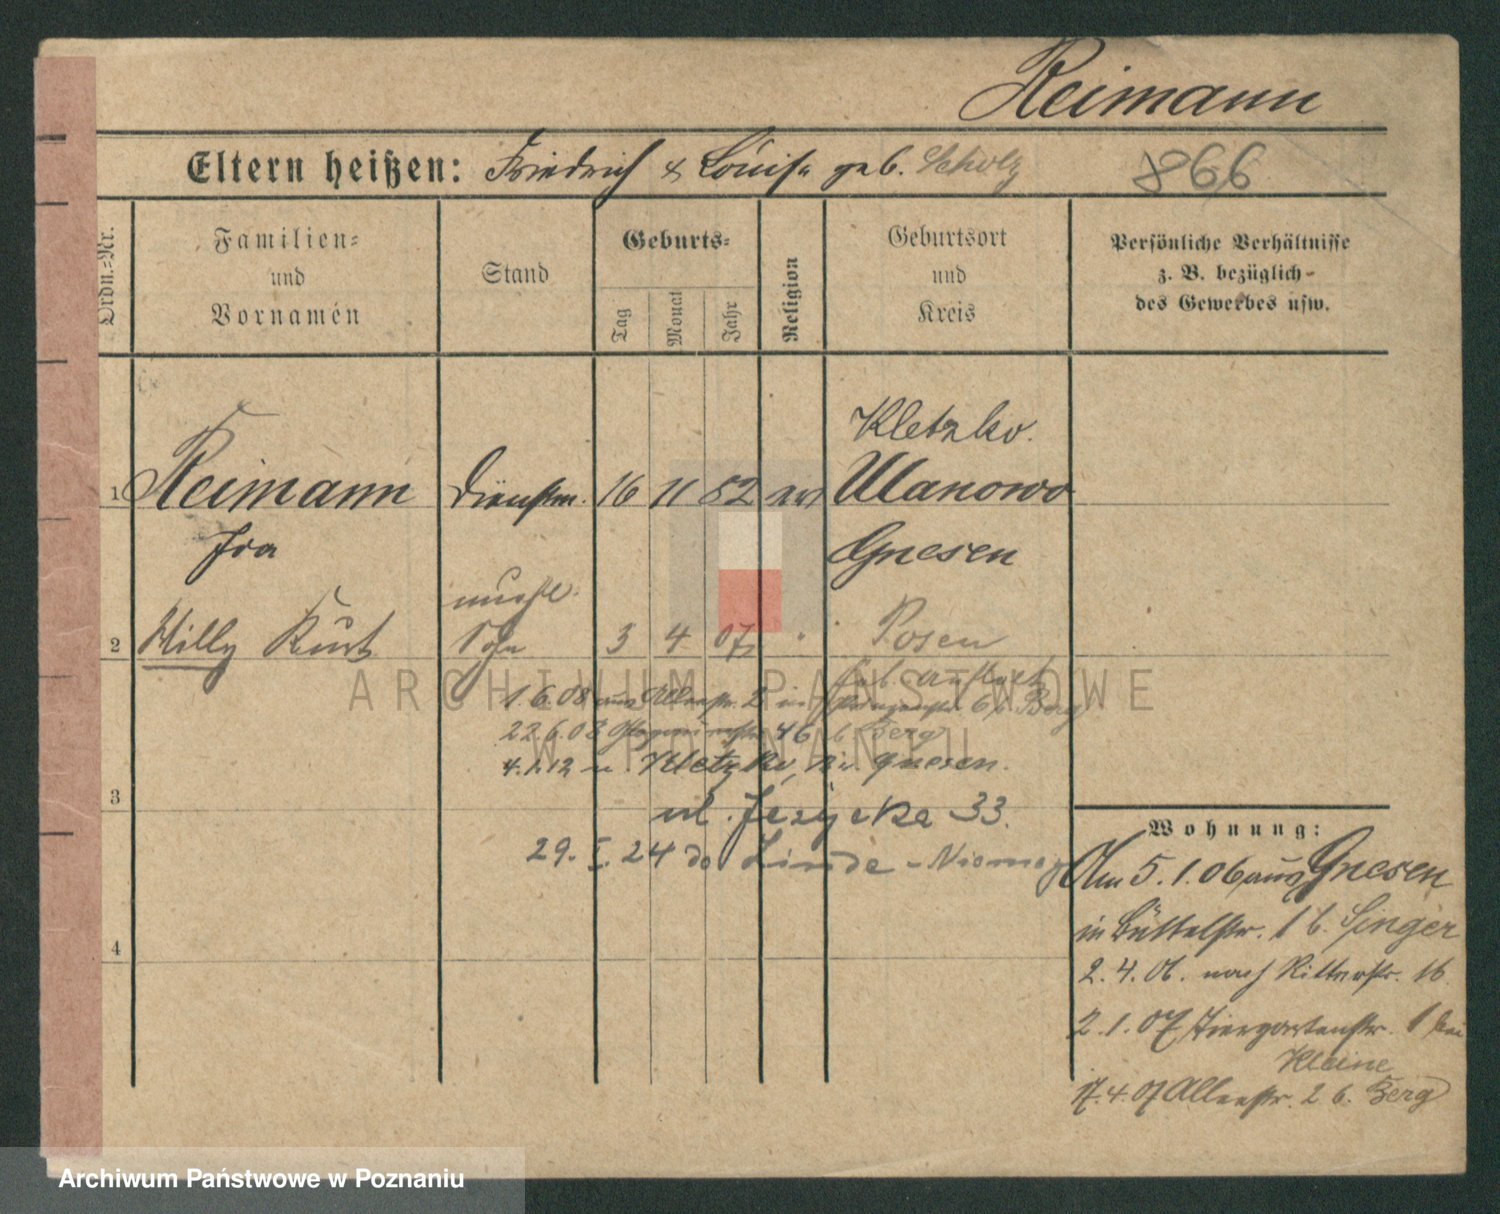 Reimann
Eltern heißen: Friedrich & Louise geb. Scholz 866
Ordn.-Nr.
Familien-
und
Vornamen
Stand
Geburts-
Tag
Monat
Jahr
Religion
Geburtsort
und
Kreis
Persönliche Verhältnisse
z. B. bezüglich
des Gewerbes usw.
Kletzko.
1 Reimann Dienstm. 16 11 82 ev Ulanowo
Gnesen
unehl.
2 Willy Kurt Sohn 3 4 07 " Posen
1.6.08 aus Alleestr. 2 in 6 b. Berg
22.6.08 46 b. Berg
4.1.12 n. Kletzko, Kr. Gnesen.
3
ul. Jeżycka 33.
29. I. 24 do Linde-
4
Wohnung:
Am 5.1.06 aus Gnesen
in Büttelstr. 1 b. Singer
2.4.06. nach Ritterstr. 16.
2.1.07 Tiergartenstr. 1 bei
Kleine
17.4.07 Alleestr. 2 b. Berg
ARCHIWUM PAŃSTWOWE
W POZNANIU
Archiwum Państwowe w Poznaniu